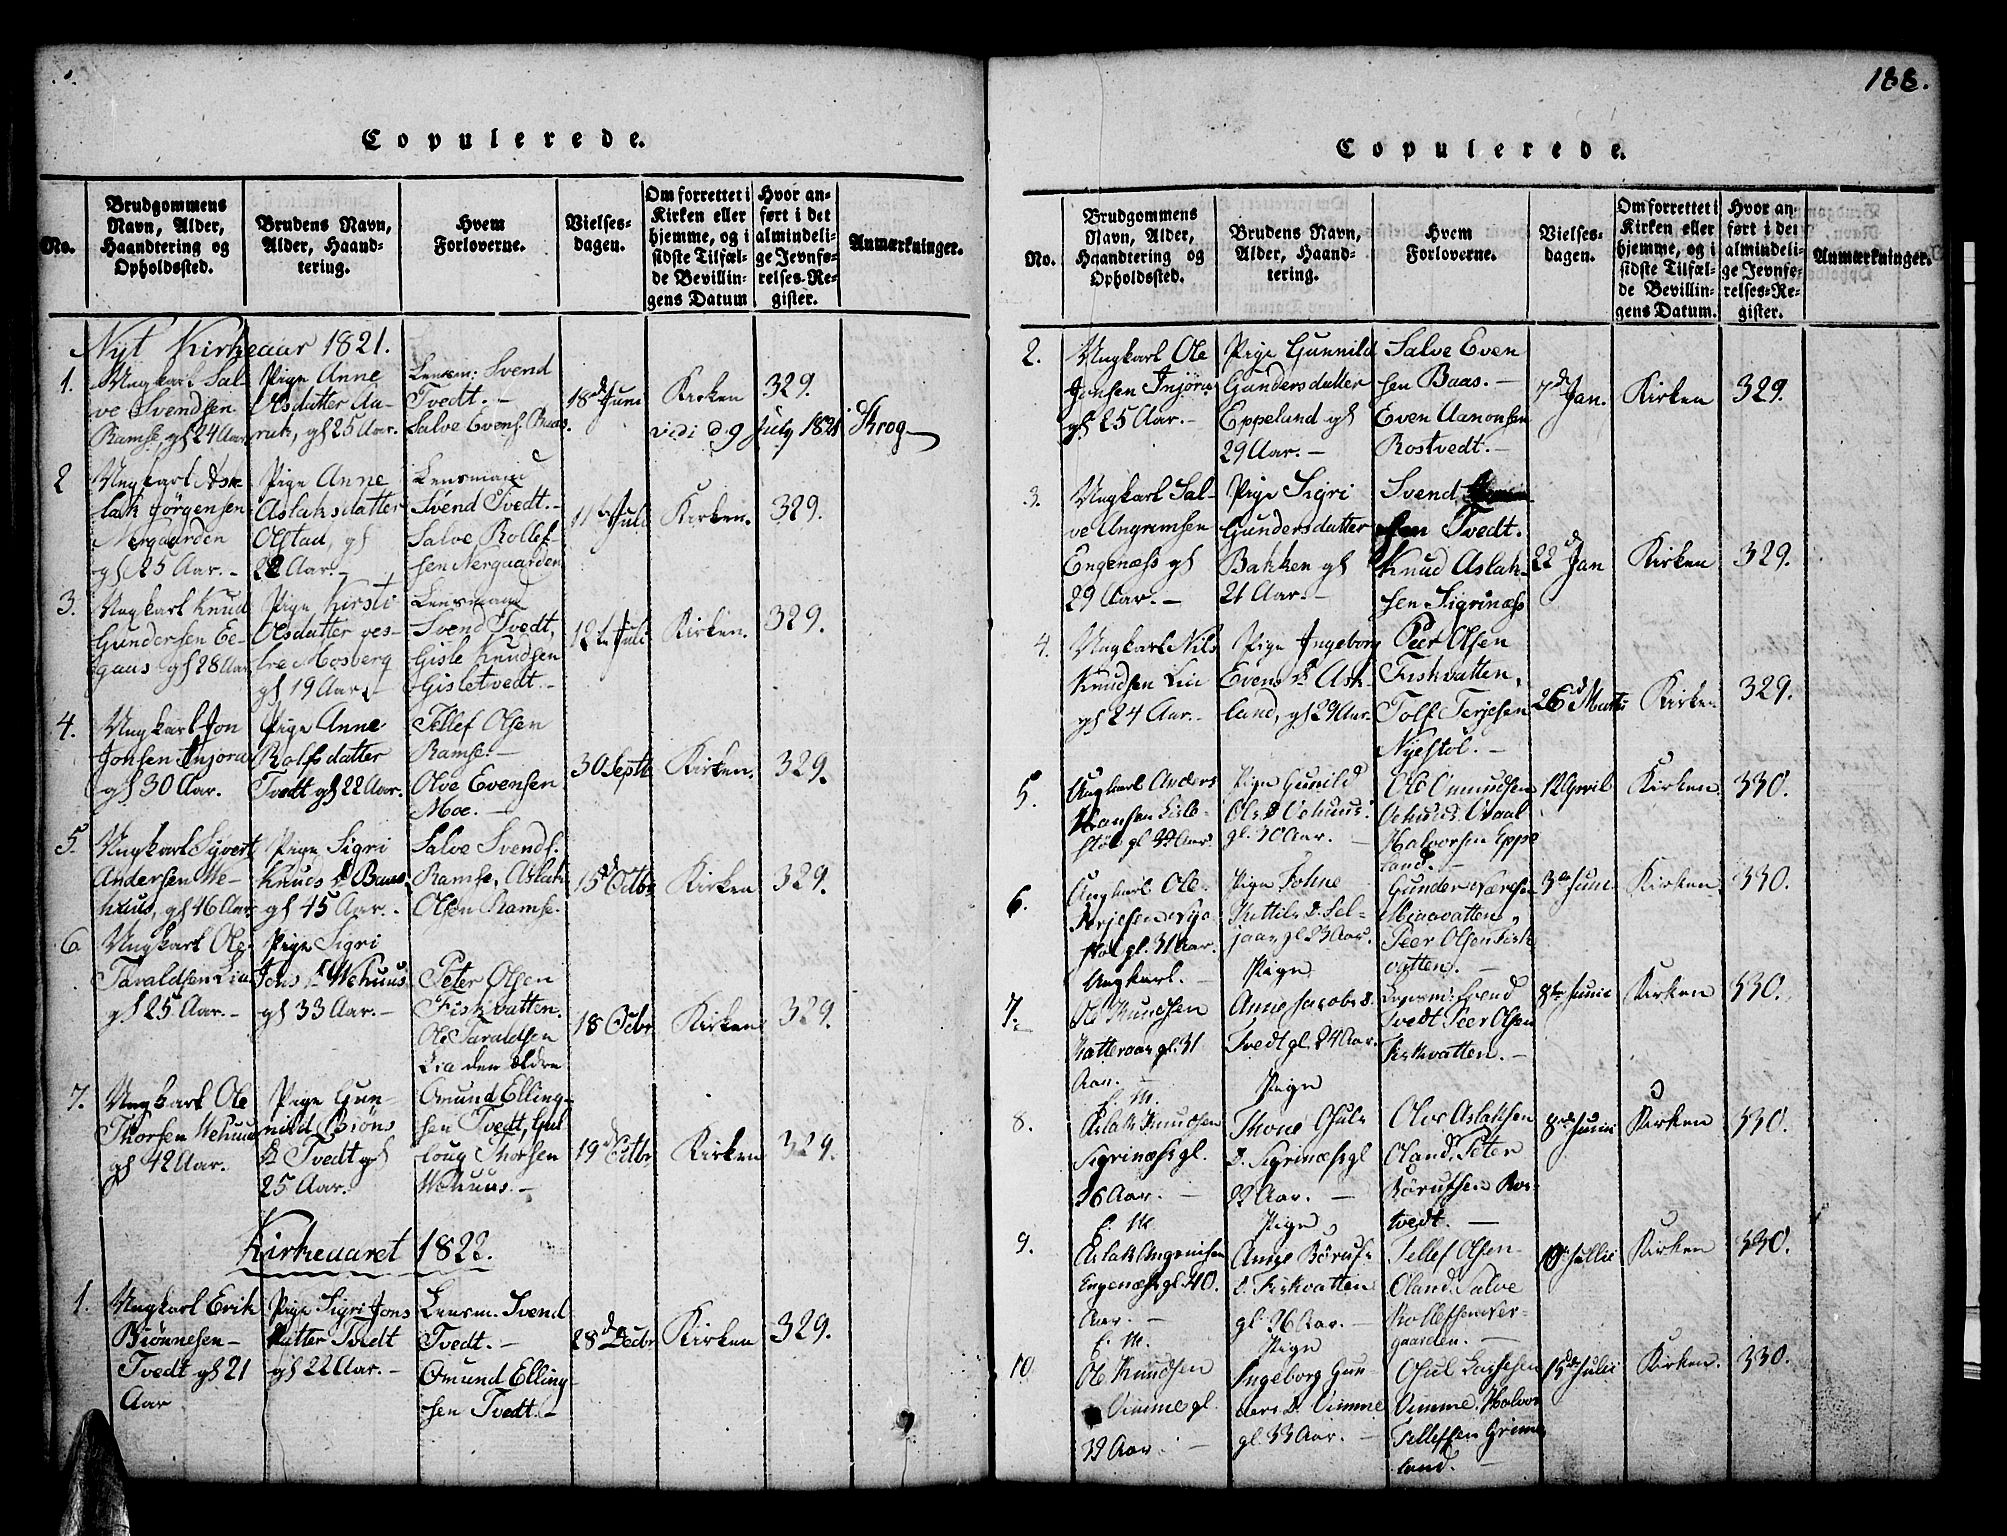 188.
Copulerede.
No.
Brudgommens
Navn, Alder,
Haandtering og
Opholdssted.
Brudens Navn,
Alder, Haand-
tering.
Hvem
Forloverne.
Vielses-
dagen.
Om forrettet i
Kirken eller
hjemme, og i
sidste Tilfæl-
de Bevillin-
gens Datum
Hvor an-
ført i det
almindeli-
ge Jevnfø-
relses-Re-
gister.
Anmærkninger.
Nyt Kirkeaar 1821.
1.
Ungkarl Sal-
ve Svendsen
Ramse, gl 24 Aar
Pige Anne
Olsdatter Aa-
rak, gl 25 Aar.
Lensm: Svend
Tvedt. -
Salve Evens: Baas.
18d Juni
Kirken
329.
vidi d 9 July 1821 Krog
2
Ungkarl As-
lak Jørgensen
Nergaarden
gl 25 Aar. -
Pige Anne
Aslaksdatter
Olstad, gl
22 Aar. -
Lensmand
Svend Tvedt. -
Salve Rollef-
sen Nergaarden
11te Juli
Kirken.
329.
3.
Ungkarl Knud
Gundersen Ee-
gaas gl 28 Aar
Pige Kirsti
Olsdatter ves-
tre Mosberg
gl 19 Aar. -
Lensmand
Svend Tvedt,
Gisle Knudsen
Gisletvedt. -
12te Juli
Kirken.
329.
4.
Ungkarl Jon
Jonsen Injora
gl 30 Aar.
Pige Anne
Rolfsdatter
Tvedt gl 22 Aar.
Tellef Olsen
Ramse. -
Olve Evensen
Moe. -
30 Septb
Kirken.
329.
5.
Ungkarl Syvert
Andersen We-
huus, gl 46 Aar
Pige Sigri
Knuds Dr Baas
gl 45 Aar. -
Salve Svends.
Ramse, Aslak
Olsen Ramse.
15d Octbr
Kirken
329.
6
Ungkarl Ole
Taraldsen Lia
gl 25 Aar. -
Pige Sigri
Jons Dr Wehuus
gl 33 Aar. -
Peter Olsen
Fiskvatten.
Ole Taraldsen
Lia den ældre
18 Octbr
Kirken
329.
7.
Ungkarl Ole
Thorsen Wehuus
gl 42 Aar.
Pige Gun-
nild Biøns
Dr Tvedt gl
25 Aar.
Omund Elling-
sen Tvedt, Gul
loug Thorsen
Wehuus. -
19d Octbr
Kirken
329.
Kirkeaaret 1822.
1.
Ungkarl Erik
Biønnesen -
Tvedt gl 21
Aar
Pige Sigri Jons
datter Tvedt
gl 22 Aar. -
Lensm. Svend
Tvedt. -
Omund Elling
sen Tvedt. -
28d Decbr
Kirken
329.
Copulerede.
No.
Brudgommens
Navn, Alder,
Haandtering og
Opholdssted.
Brudens Navn,
Alder, Haand-
tering.
Hvem
Forloverne.
Vielses-
dagen.
Om forrettet i
Kirken eller
hjemme, og i
sidste Tilfæl-
de Bevillin-
gens Datum.
Hvor an-
ført i det
almindeli-
ge Jevnfø-
relses-Re-
gister.
Anmærkninger.
2.
Ungkarl Ole
Jonsen Injøra
gl 25 Aar. -
Pige Gunnild
Gundersdatter
Eppeland gl
29 Aar. -
Salve Even
sen Baas. -
Even Aanonsen
Rostvedt. -
7d Jan.
Kirken
329.
3.
Ungkarl Sal-
ve Ungrimsen
Engenæss gl
29 Aar. -
Pige Sigri
Gundersdatter
Bakken gl
21 Aar. -
Svend
Tvedt.
Knud Aslak-
sen Sigrinæss
22d Jan
Kirken
329.
4.
Ungkarl Nils
Knudsen Lia
gl 24 Aar. -
Pige Ingeborg
Evens Dr Ask-
land, gl 29 Aar.
Peer Olsen
Fiskvatten,
Tolf Terjesen
Nyestøl. -
26d Marts
Kirken
329.
5.
Ungkarl Anders
Hansen Lisle-
støl gl. Aar.
Pige Gunild
Ols D Vehuus.
gl. 30 Aar. -
Ole Omundsen
Vehuus,
Halvorsen Eppe
land. -
12 April
Kirken.
330.
6.
Ungkarl Ole
Terjesen Nye
støl gl. 31 Aar.
Pige Tohne
Kittils D. Sel-
jaas gl. 23 Aar.
Gunder
vatten,
Peer Olsen Fisk
vatten. -
3die Juni
Kirken
330.
7.
Ungkarl. -
Ole Knudsen
Katteraas gl. 31
Aar.
Pige
Anne Jacobs d.
Tvedt gl. 24 Aar.
Lensm: Svend
Tvedt Peer Olsen
Fiskvatten. -
8de Junii
Kirken
330.
8.
E. M.
Aslak Knudsen
Sigrinæs gl.
26 Aar. -
Pige
Thone Osuls
D. Sigrinæs gl
22 Aar. -
Olav Aslaksen
Oland. Peter
Børufsen Ros-
tvedt. -
8de Junii
Kirken
330.
9.
E. M.
Aslak Ungrimsen
Engenæs gl. 40.
Aar. -
Pige
Anne Børufs
D. Fiskvatten
gl. 26 Aar. -
Tellef Olsen
Oland. Salve
Rollefsen Ner-
gaarden. -
Kirken
330.
10.
E. M.
Ole Knudsen
Vimme gl.
Aar. -
Pige
Ingeborg Gun-
ders D. Vimme
gl. 33 Aar. -
Osul Lassesen
Vimme, Halvor
Tellefsen Grime
land. -
15de Julii
Kirken.
330.